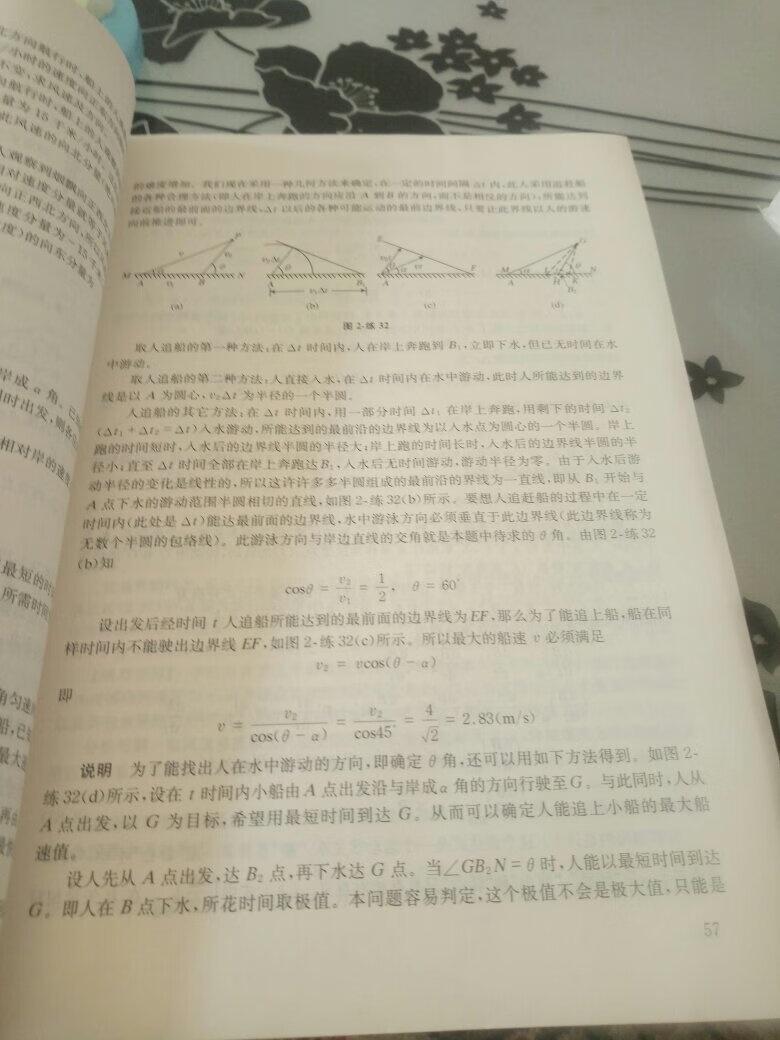 北方向航行时,船上的
/小时的速度向正东
不变,求风速及方向。
向航行时,船上的人观察
量为 15 千米/小时
此风速的向北分量
人观察到烟飘向正西
相对速度分量就等
向正西北方向,所
速度分量为-15 千米
度)的向东分量为
岸成 α 角。已知
同时出发,则
相对岸的速度
最短的时
所需时间
角匀速
船,已知
最大速
的难度增加。我们现在采用一种几何方法来确定,在一定的时间间隔 Δt 内,此人采用追赶船
的各种合理方法(即人在岸上奔跑的方向应沿 A 到 B 的方向,而不是相反的方向),所能达到
接近船的最前面的边界线,Δt 以后的各种可能运动的最前边界线,只要让此界线以人的游速
向前推进即可。
(a) (b) (c) (d)
图 2-练 32
取人追船的第一种方法:在 Δt 时间内,人在岸上奔跑到 B₁,立即下水,但已无时间在水
中游动。
取人追船的第二种方法:人直接入水,在 Δt 时间内在水中游动,此时人所能达到的边界
线是以 A 为圆心,v₂Δt 为半径的一个半圆。
人追船的其它方法:在 Δt 时间内,用一部分时间 Δt₁ 在岸上奔跑,用剩下的时间 Δt₂
(Δt₁+Δt₂=Δt)入水游动,所能达到的最前沿的边界线为以入水点为圆心的一个半圆。岸上
跑的时间短时,入水后的边界线半圆的半径大;岸上跑的时间长时,入水后的边界线半圆的半
径小;直至 Δt 时间全部在岸上奔跑达 B₁,入水后无时间游动,游动半径为零。由于入水后游
动半径的变化是线性的,所以这许许多多半圆组成的最前沿的界线为一直线,即从 B₁ 开始与
A 点下水的游动范围半圆相切的直线,如图 2-练 32(b)所示。要想人追赶船的过程中在一定
时间内(此处是 Δt)能达最前面的边界线,水中游泳方向必须垂直于此边界线(此边界线称为
无数个半圆的包络线)。此游泳方向与岸边直线的交角就是本题中待求的 θ 角。由图 2-练 32
(b)知
cosθ = v₂/v₁ = 1/2, θ = 60°
设出发后经时间 t 人追船所能达到的最前面的边界线为 EF,那么为了能追上船,船在同
样时间内不能驶出边界线 EF,如图 2-练 32(c)所示。所以最大的船速 v 必须满足
v₂ = vcos(θ − α)
即
v = v₂/cos(θ − α) = v₂/cos45° = 4/√2 = 2.83(m/s)
说明 为了能找出人在水中游动的方向,即确定 θ 角,还可以用如下方法得到。如图 2-
练 32(d)所示,设在 t 时间内小船由 A 点出发沿与岸成 α 角的方向行驶至 G。与此同时,人从
A 点出发,以 G 为目标,希望用最短时间到达 G。从而可以确定人能追上小船的最大船
速值。
设人先从 A 点出发,达 B₂ 点,再下水达 G 点。当∠GB₂N=θ 时,人能以最短时间到达
G。即人在 B 点下水,所花时间取极值。本问题容易判定,这个极值不会是极大值,只能是
57